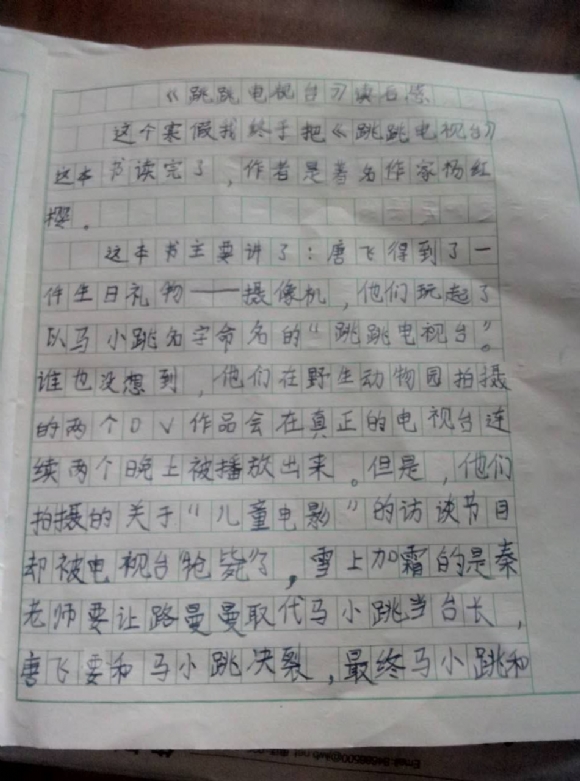 《跳跳电视台》读后感
这个寒假我终于把《跳跳电视台》
这本书读完了，作者是著名作家杨红
樱。
这本书主要讲了：唐飞得到了一
件生日礼物——摄像机，他们玩起了
以马小跳名字命名的“跳跳电视台”。
谁也没想到，他们在野生动物园拍摄
的两个DV作品会在真正的电视台连
续两个晚上被播放出来。但是，他们
拍摄的关于“儿童电影”的访谈节目
却被电视台“枪毙”了，雪上加霜的是秦
老师要让路曼曼取代马小跳当台长，
唐飞要和马小跳决裂，最终马小跳和